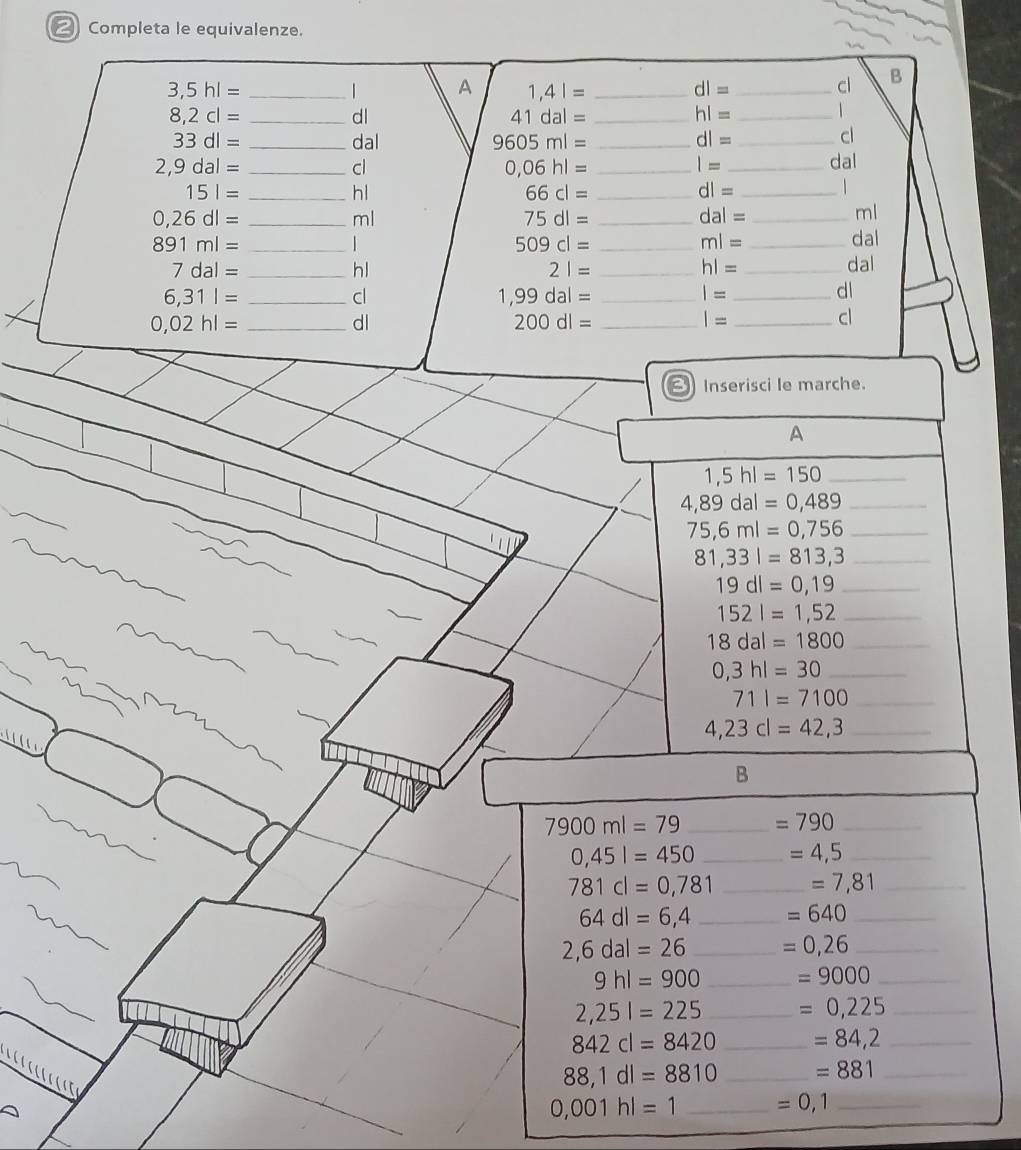 2 Completa le equivalenze.
A
3,5 hl = ________ l
8,2 cl = ________ dl
33 dl = ________ dal
2,9 dal = ________ cl
15 l = ________ hl
0,26 dl = ________ ml
891 ml = ________ l
7 dal = ________ hl
6,31 l = ________ cl
0,02 hl = ________ dl
B
1,4 l = ________ dl = ________ cl
41 dal = ________ hl = ________ l
9605 ml = ________ dl = ________ cl
0,06 hl = ________ l = ________ dal
66 cl = ________ dl = ________ l
75 dl = ________ dal = ________ ml
509 cl = ________ ml = ________ dal
2 l = ________ hl = ________ dal
1,99 dal = ________ l = ________ dl
200 dl = ________ l = ________ cl
3 Inserisci le marche.
A
1,5 hl = 150 ______
4,89 dal = 0,489 ______
75,6 ml = 0,756 ______
81,33 l = 813,3 ______
19 dl = 0,19 ______
152 l = 1,52 ______
18 dal = 1800 ______
0,3 hl = 30 ______
71 l = 7100 ______
4,23 cl = 42,3 ______
B
7900 ml = 79 ______ = 790 ______
0,45 l = 450 ______ = 4,5 ______
781 cl = 0,781 ______ = 7,81 ______
64 dl = 6,4 ______ = 640 ______
2,6 dal = 26 ______ = 0,26 ______
9 hl = 900 ______ = 9000 ______
2,25 l = 225 ______ = 0,225 ______
842 cl = 8420 ______ = 84,2 ______
88,1 dl = 8810 ______ = 881 ______
0,001 hl = 1 ______ = 0,1 ______